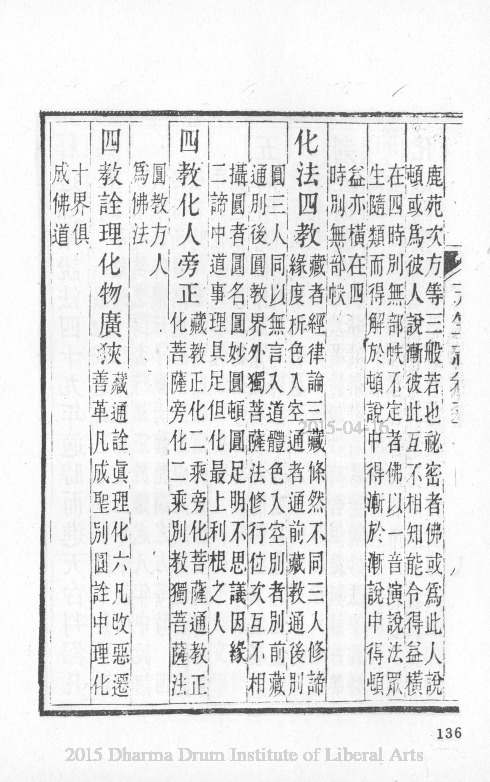 鹿苑次方等三般若也祕密者佛或爲此人說
頓或爲彼人說漸彼此互不相知能令得益橫
在四時別無部帙不定者佛以一音演說法眾
生隨類而得解於頓說中得漸於漸說中得頓
益亦橫在四
時別無部帙
化法四教
藏者經律論三藏條然不同三人修諦
緣度析色入空通者通前藏教通後別
圓三人同以無言入道體色入空別者別前藏
通別後圓教界外獨菩薩法修行位次互不相
攝圓者圓名圓妙圓頓圓足明不思議因緣
二諦中道事理具足但化最上利根之人
四教化人旁正
藏教正化二乘旁化菩薩通教正
化菩薩旁化二乘別教獨菩薩法
圓教方人
爲佛法
四教詮理化物廣狹
藏通詮眞理化六凡改惡遷
善革凡成聖別圓詮中理化
十界俱
成佛道
2015-04-16
136
2015 Dharma Drum Institute of Liberal Arts